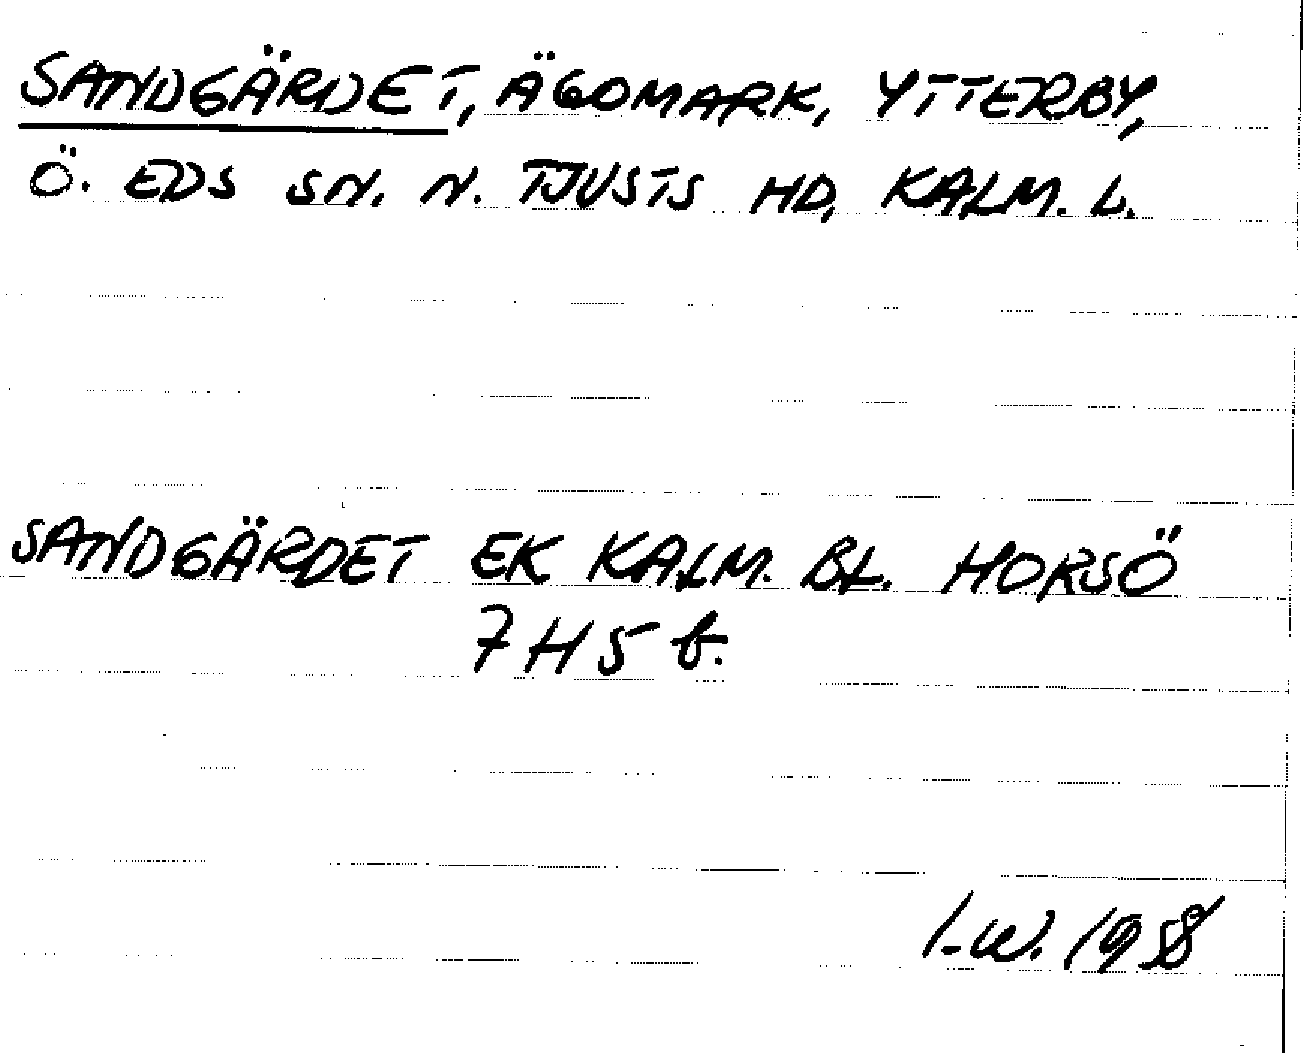 SANDGÄRDET, ÄGOMARK, YTTERBY,
Ö. EDS SN. N. TJUSTS HD, KALM. L.
SANDGÄRDET EK KALM. BL. HORSÖ
7 H 5 b.
I-W. 198